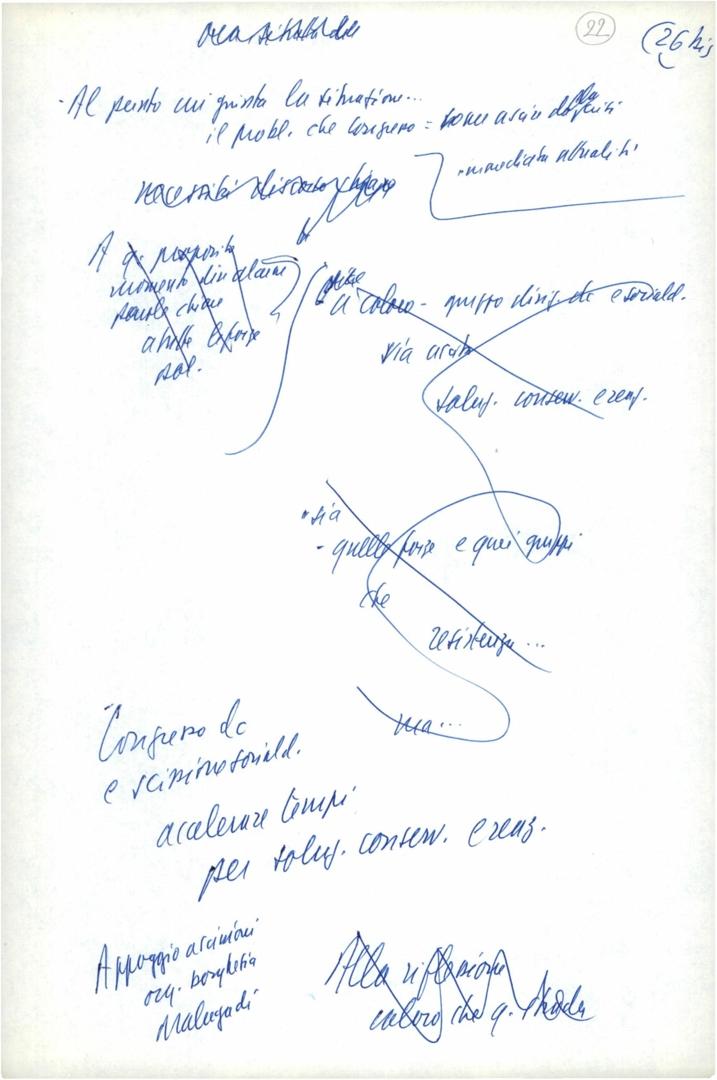 22
(26 bis
- Al punto cui giunta la situazione...
il probl. che Congresso = come uscire dalla crisi
immediata attualità
A q. proposito
momento di
parole chiare
a tutte le forze
pol.
a coloro - gruppo dirig. dc e sociald.
via
soluz. conserv. e reaz.
- sia
- quelle forze e quei gruppi
che
resistenza...
ma...
Congresso dc
e scissione sociald.
accelerare tempi
per soluz. conserv. e reaz.
Appoggio a scissioni
org. borghesia
Malagodi
Alla riflessione
coloro che q. strada